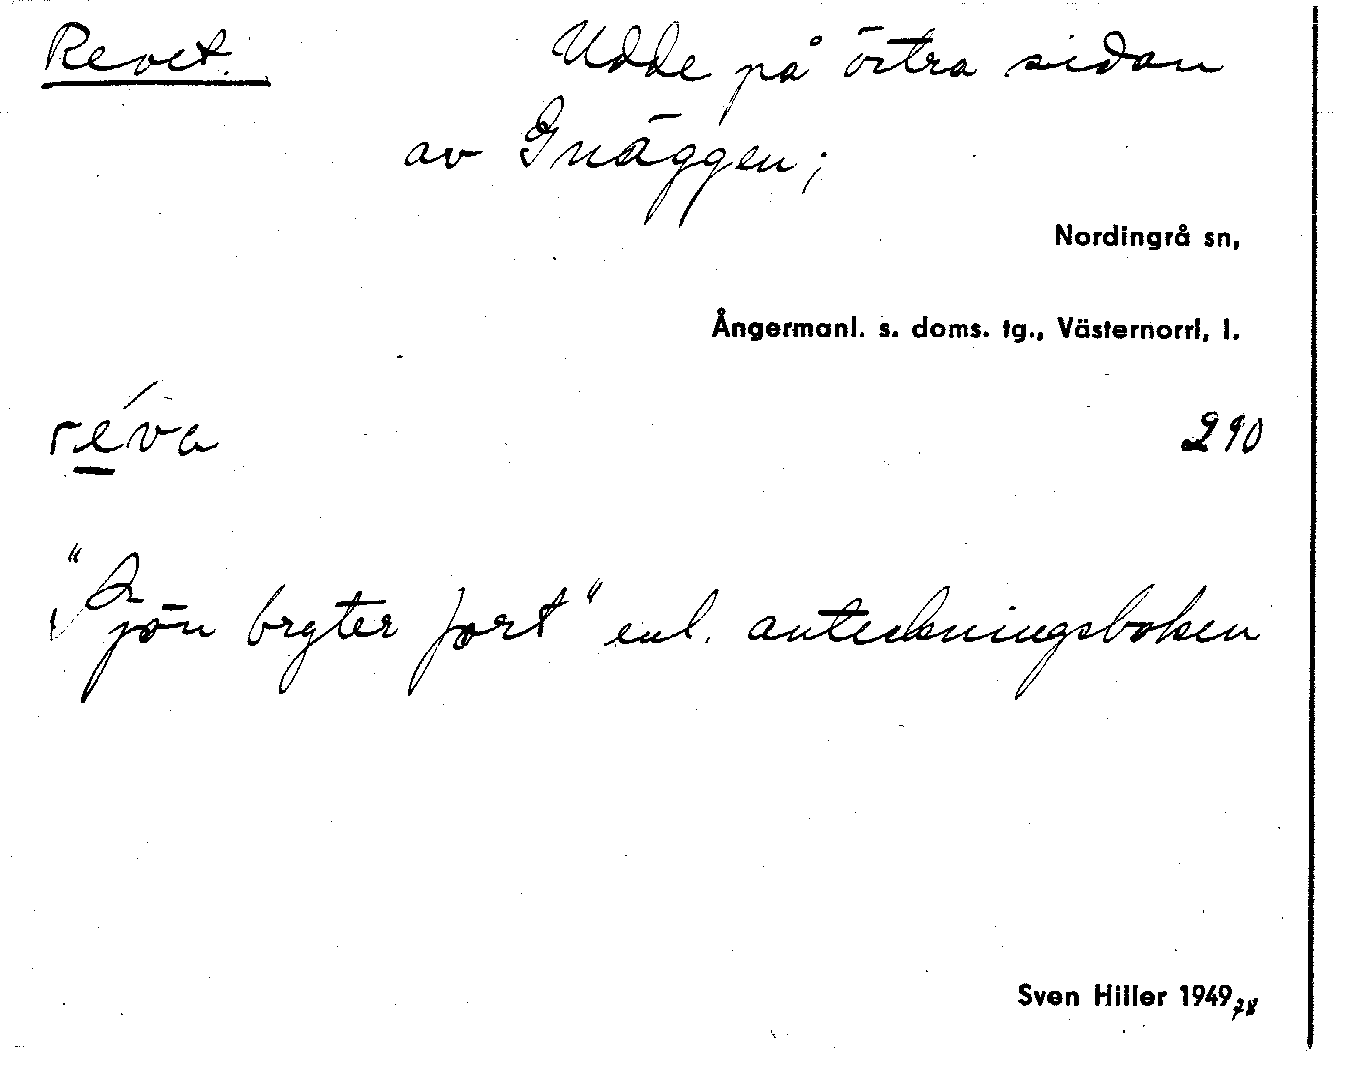 Revet. Udde på östra sidan
av Gnäggen;
Nordingrå sn,
Ångermanl. s. doms. tg., Västernorrl. l.
réva 290
"Sjön bryter fort" enl. anteckningsboken
Sven Hiller 1949